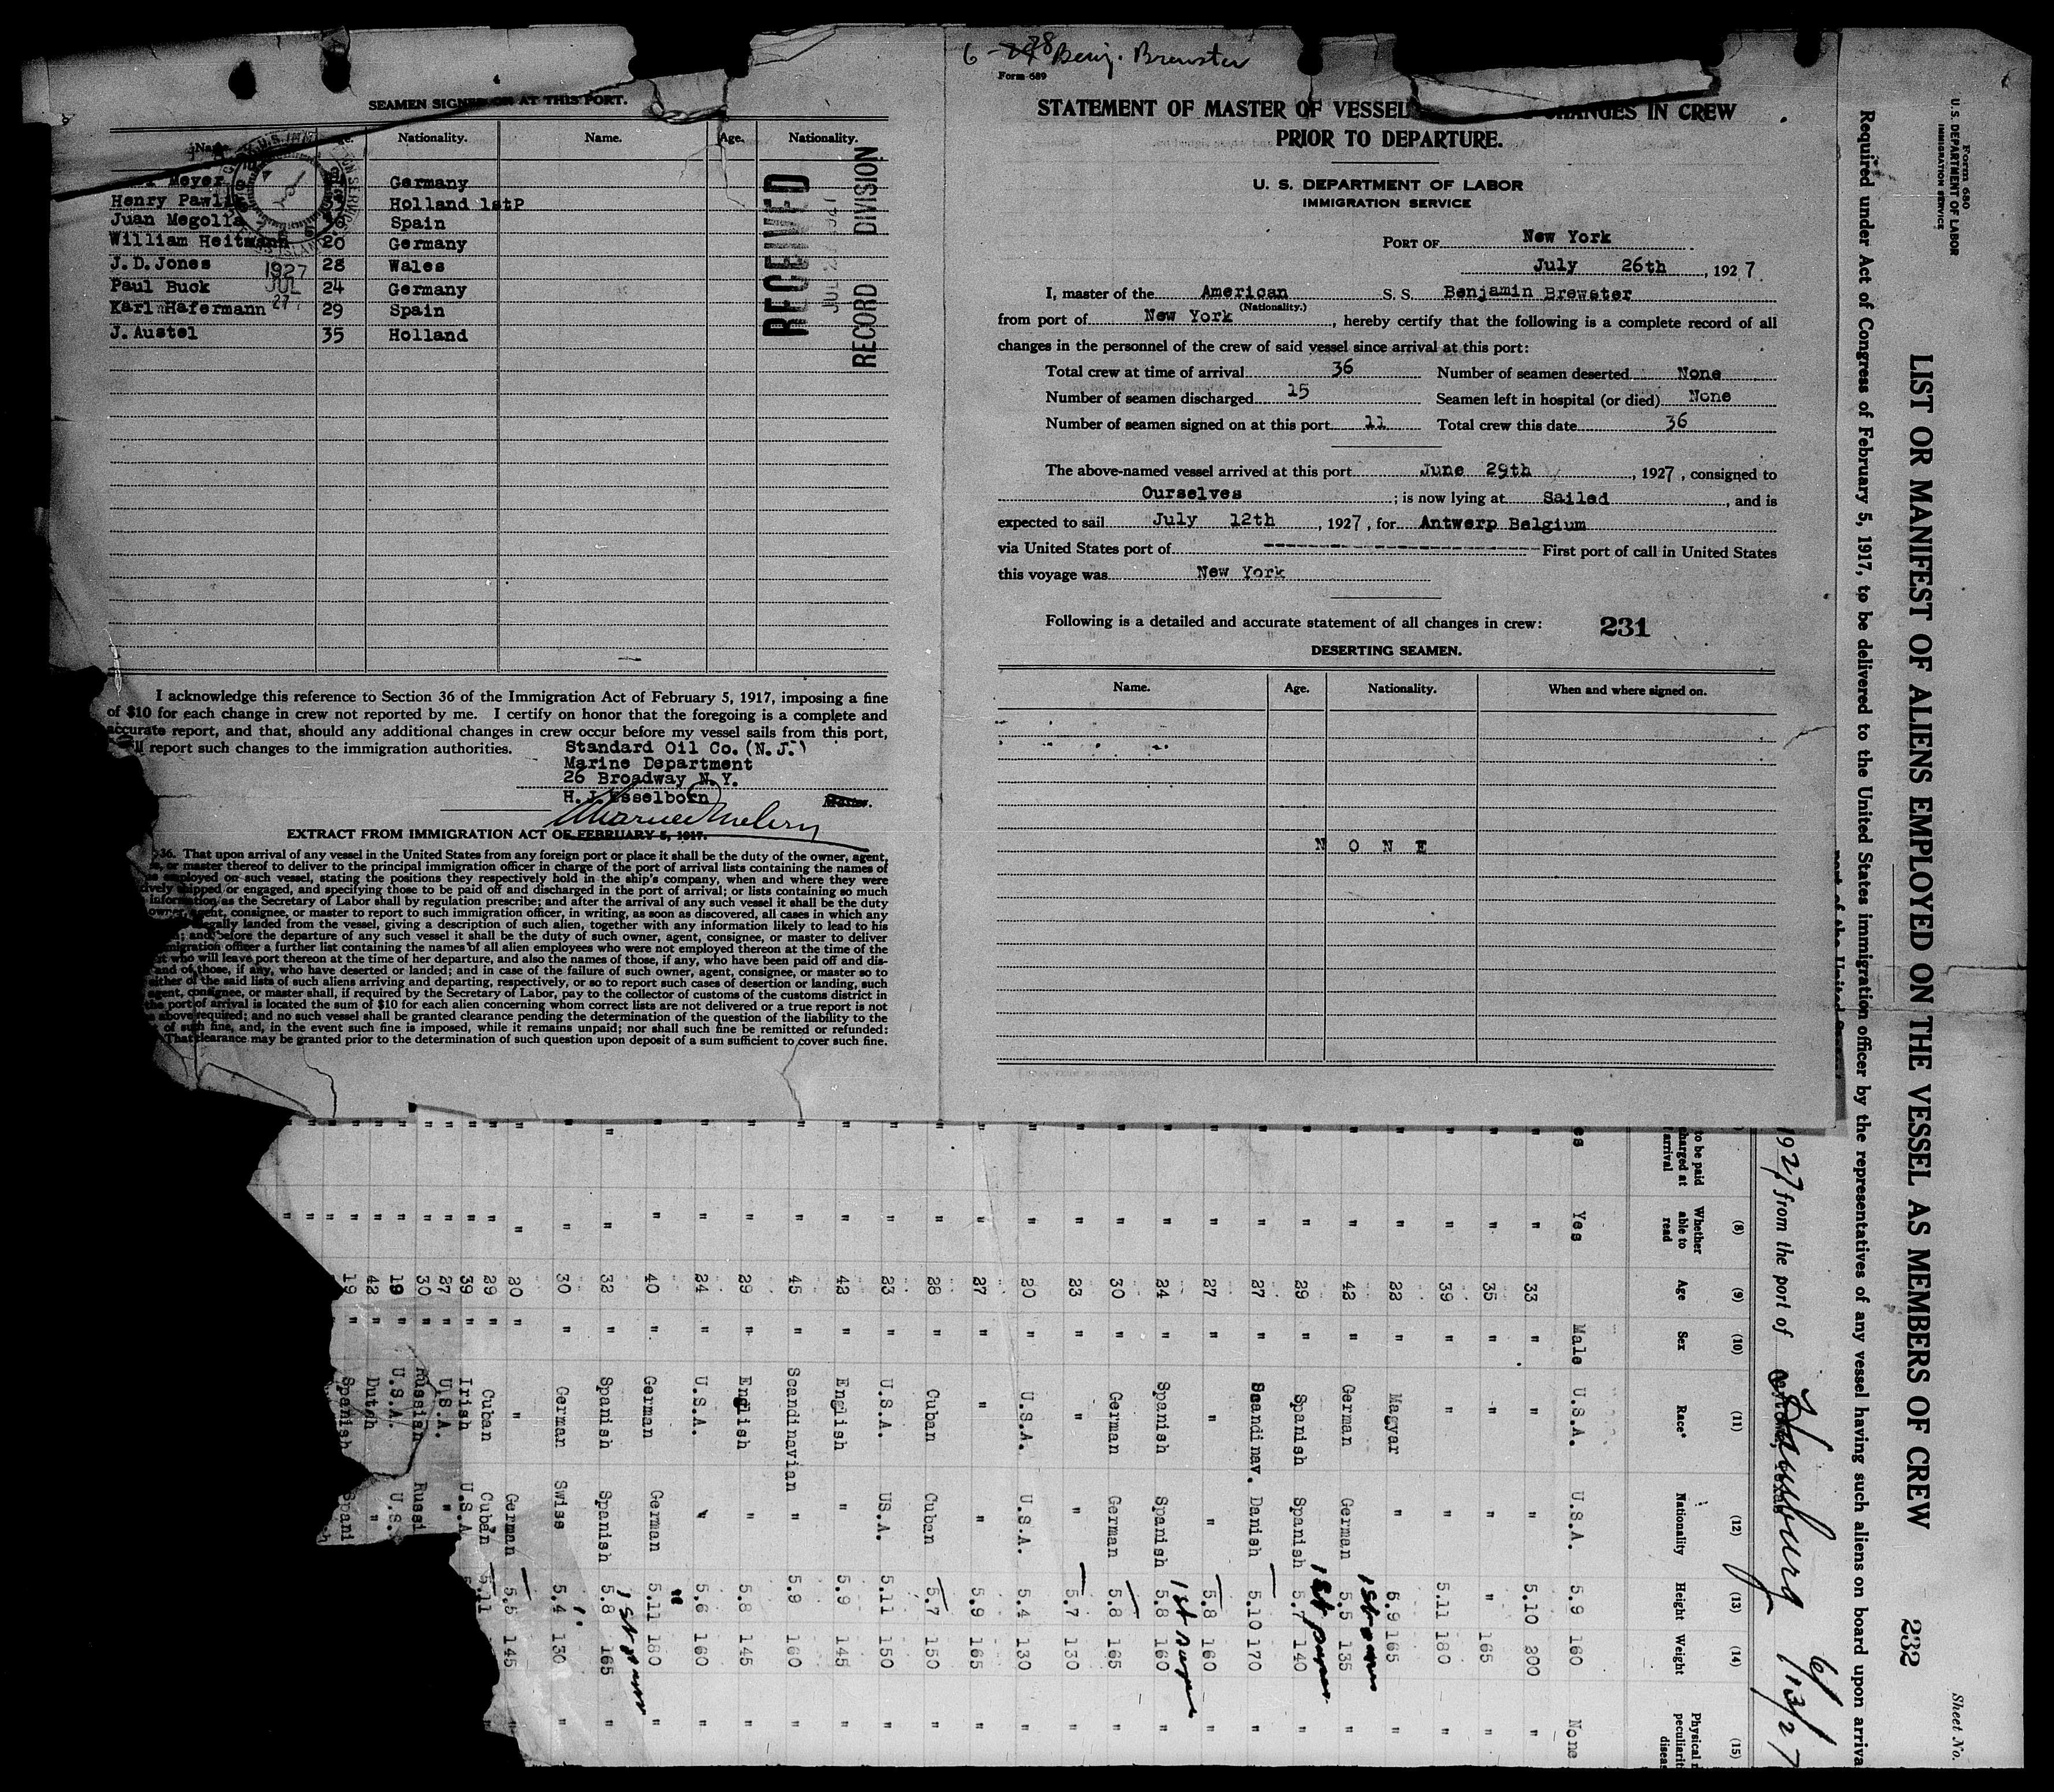 4
SEAMEN SIGNED ON AT THIS PORT.
Name. Nationality. Name. Age. Nationality.
Meyer Germany
Henry Holland 1stP
Juan Megolla Spain
William Heitmann 20 Germany
J.D.Jones 28 Wales
Paul Buck 24 Germany
Karl Hafermann 29 Spain
J. Austel 35 Holland
1927
JUL
27
RECEIVED
RECORD DIVISION
I acknowledge this reference to Section 36 of the Immigration Act of February 5, 1917, imposing a fine
of $10 for each change in crew not reported by me. I certify on honor that the foregoing is a complete and
accurate report, and that, should any additional changes in crew occur before my vessel sails from this port,
report such changes to the immigration authorities.
Standard Oil Co. (N.J.)
Marine Department
26 Broadway N.Y.
H.J.Esselborn
Master.
EXTRACT FROM IMMIGRATION ACT OF FEBRUARY 5, 1917.
36. That upon arrival of any vessel in the United States from any foreign port or place it shall be the duty of the owner, agent,
or master thereof to deliver to the principal immigration officer in charge of the port of arrival lists containing the names of
employed on such vessel, stating the positions they respectively hold in the ship's company, when and where they were
shipped or engaged, and specifying those to be paid off and discharged in the port of arrival; or lists containing so much
information as the Secretary of Labor shall by regulation prescribe; and after the arrival of any such vessel it shall be the duty
owner, agent, consignee, or master to report to such immigration officer, in writing, as soon as discovered, all cases in which any
illegally landed from the vessel, giving a description of such alien, together with any information likely to lead to his
and before the departure of any such vessel it shall be the duty of such owner, agent, consignee, or master to deliver
immigration officer a further list containing the names of all alien employees who were not employed thereon at the time of the
who will leave port thereon at the time of her departure, and also the names of those, if any, who have been paid off and dis-
and of those, if any, who have deserted or landed; and in case of the failure of such owner, agent, consignee, or master so to
either of the said lists of such aliens arriving and departing, respectively, or so to report such cases of desertion or landing, such
agent, consignee, or master shall, if required by the Secretary of Labor, pay to the collector of customs of the customs district in
the port of arrival is located the sum of $10 for each alien concerning whom correct lists are not delivered or a true report is not
above required; and no such vessel shall be granted clearance pending the determination of the question of the liability to the
of such fine, and, in the event such fine is imposed, while it remains unpaid; nor shall such fine be remitted or refunded:
That clearance may be granted prior to the determination of such question upon deposit of a sum sufficient to cover such fine.
6 - 28 Benj. Brewster
Form 689
STATEMENT OF MASTER OF VESSEL CHANGES IN CREW
PRIOR TO DEPARTURE.
U. S. DEPARTMENT OF LABOR
IMMIGRATION SERVICE
PORT OF New York
July 26th, 1927
I, master of the American S. S. Benjamin Brewster
(Nationality.)
from port of New York, hereby certify that the following is a complete record of all
changes in the personnel of the crew of said vessel since arrival at this port:
Total crew at time of arrival 36 Number of seamen deserted None
Number of seamen discharged 15 Seamen left in hospital (or died) None
Number of seamen signed on at this port 11 Total crew this date 36
The above-named vessel arrived at this port June 29th, 1927, consigned to
Ourselves; is now lying at Sailed, and is
expected to sail July 12th, 1927, for Antwerp Belgium
via United States port of ---------- First port of call in United States
this voyage was New York
Following is a detailed and accurate statement of all changes in crew: 231
DESERTING SEAMEN.
Name. Age. Nationality. When and where signed on.
N O N E
Form 680
U. S. DEPARTMENT OF LABOR
IMMIGRATION SERVICE
Sheet No.
LIST OR MANIFEST OF ALIENS EMPLOYED ON THE VESSEL AS MEMBERS OF CREW 232
Required under Act of Congress of February 5, 1917, to be delivered to the United States immigration officer by the representatives of any vessel having such aliens on board upon arriva
port of the United
1927 from the port of Hamburg 6/13/27
(8) (9) (10) (11) (12) (13) (14) (15)
to be paid
charged at
arrival
Whether able to read Age Sex Race* Nationality Height Weight Physical
peculiarit
disea
es Yes Male U.S.A. U.S.A. 5.9 160 None
" 33 " " " 5.10 200 "
" 35 " " " " 165 "
" 39 " " " 5.11 180 "
" 22 " Magyar " 5.9 165 "
" 42 " German German 5.5 135 "
" 29 " Spanish Spanish 5.7 140 " 1st paper
" 27 " Scandinav. Danish 5.10 170 "
" 27 " " " 5.8 160 "
" 24 " Spanish Spanish 5.8 160 " 1st paper
" 30 " German German 5.8 165 "
" 23 " " " 5.7 130 "
" 20 " U.S.A. U.S.A. 5.4 130 "
" 27 " " " 5.9 165 "
" 28 " Cuban Cuban 5.7 150 "
" 23 " U.S.A. US.A. 5.11 150 "
" 42 " English " 5.9 145 "
" 45 " Scandinavian " 5.9 160 "
" 29 " English 5.8 145 "
" 24 " U.S.A. " 5.6 160 "
" 40 " German German 5.11 180 "
" 32 " Spanish Spanish 5.8 165 "
" 30 " German Swiss 5.4 130 "
" 20 " " German 5.5 145 "
" 29 " Cuban Cuban 5.11
" 39 " Irish U.S.A.
" 27 " U.S.A. "
" 30 " Russian Russi
" 19 " U.S.A. U.S.
" 42 " Dutch "
" 19 " Spanish Spani